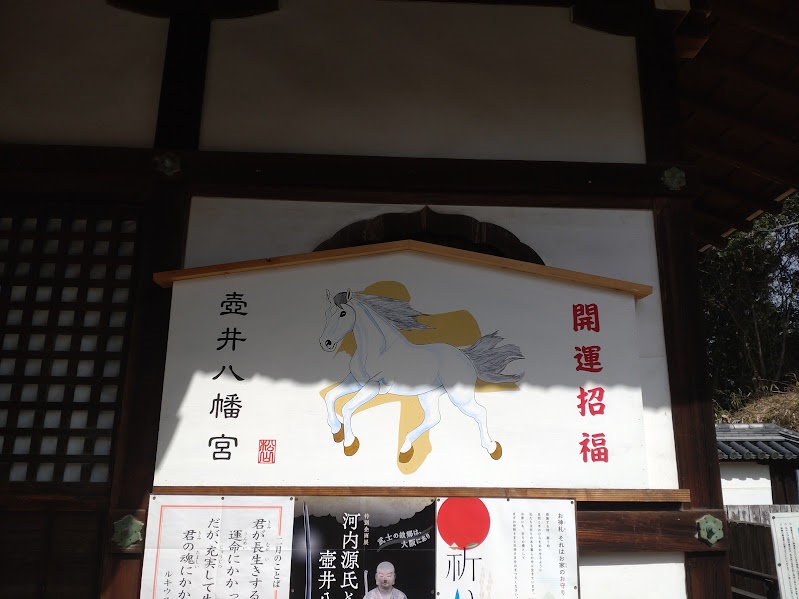 開運招福
壺井八幡宮
二月のことば
君が長生きする
運命にかかっ
だが、充実して生
君の魂にかか
特別企画展
武士の故郷は、
大阪に在り
河内源氏と
壺井八
祈
お神札 それはお家のお守り